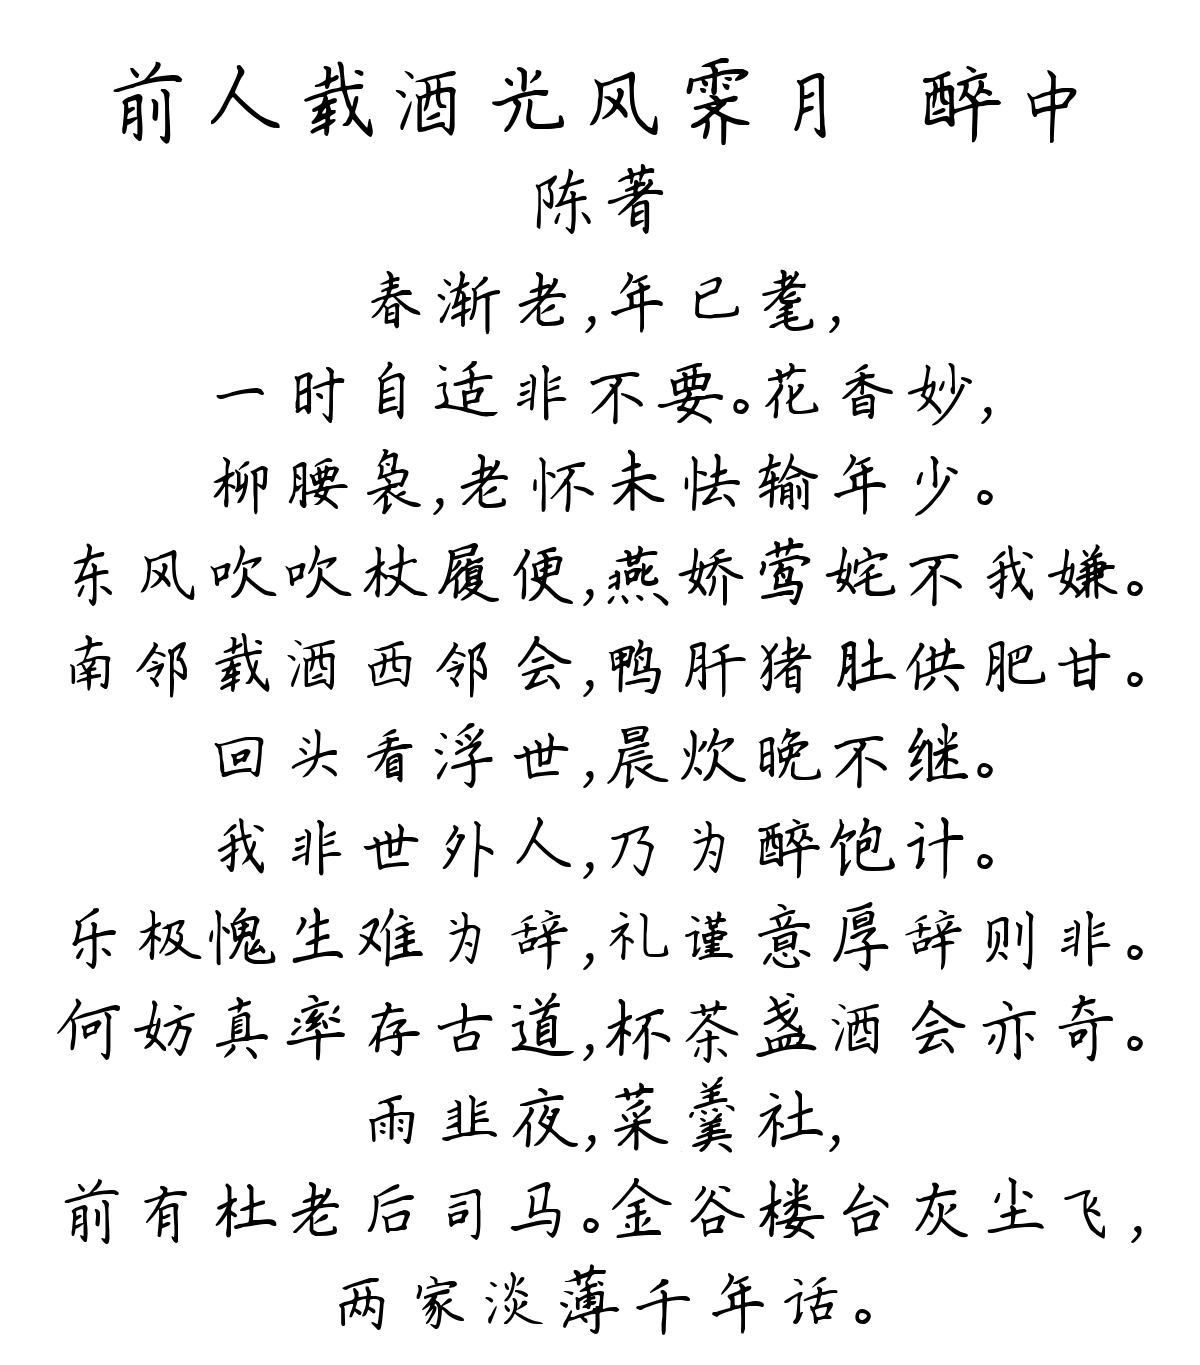 前人载酒光风霁月 醉中
陈著
春渐老,年已耄,
一时自适非不要。花香妙,
柳腰袅,老怀未怯输年少。
东风吹吹杖履便,燕娇莺姹不我嫌。
南邻载酒西邻会,鸭肝猪肚供肥甘。
回头看浮世,晨炊晚不继。
我非世外人,乃为醉饱计。
乐极愧生难为辞,礼谨意厚辞则非。
何妨真率存古道,杯茶盏酒会亦奇。
雨韭夜,菜羹社,
前有杜老后司马。金谷楼台灰尘飞,
两家淡薄千年话。